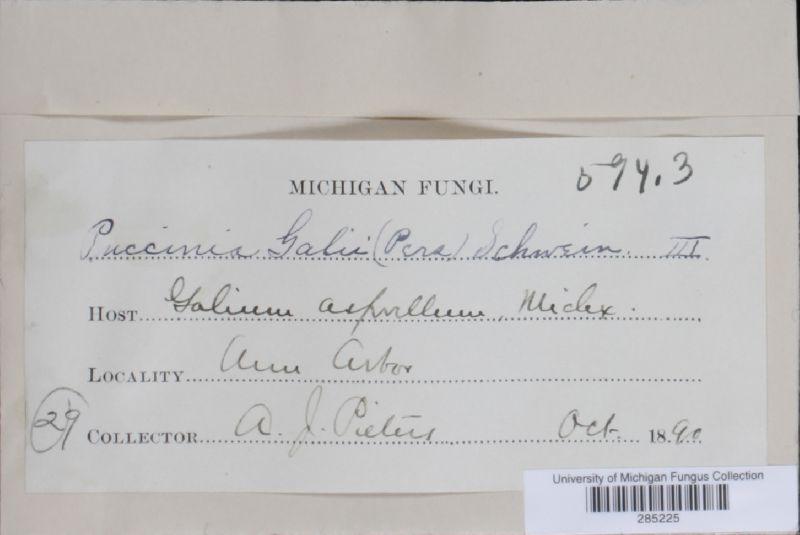 MICHIGAN FUNGI. 594.3
Puccinia Galii (Pers) Schwein. III
HOST Galium asprellum, Michx.
LOCALITY Ann Arbor
29 COLLECTOR A. J. Pieters Oct. 1890
University of Michigan Fungus Collection
285225